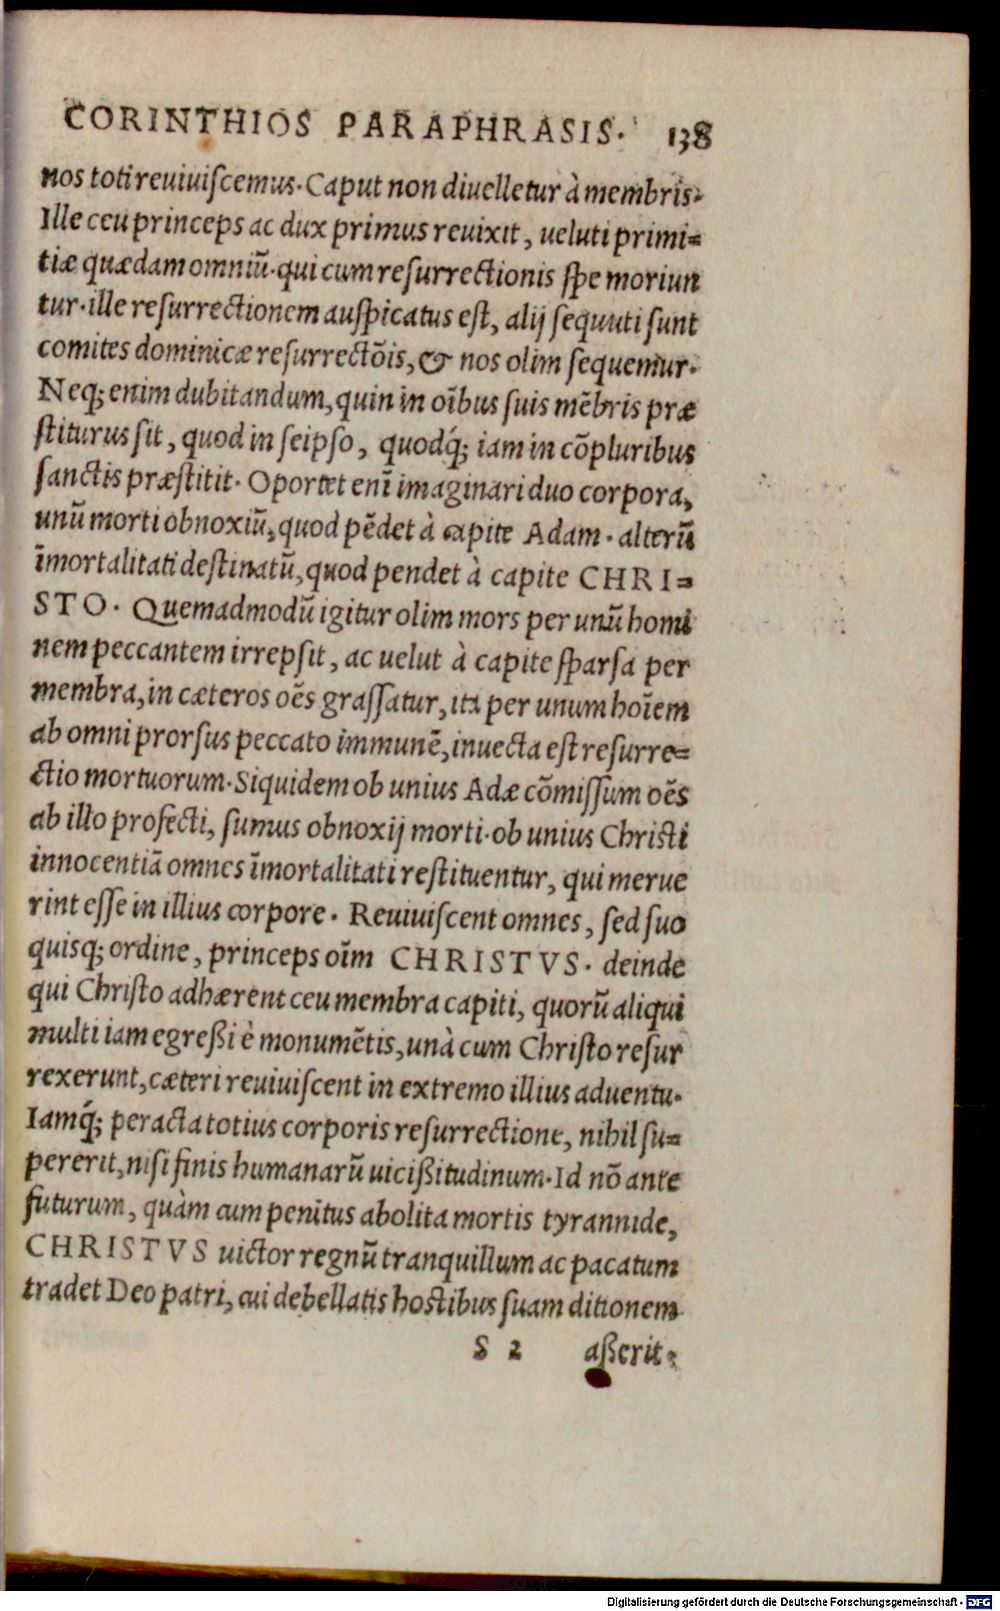 CORINTHIOS PARAPHRASIS. 138
nos toti reuiuiscemus. Caput non diuelletur à membris.
Ille ceu princeps ac dux primus reuixit, ueluti primi=
tiæ quædam omniũ. qui cum resurrectionis spe moriun
tur. ille resurrectionem auspicatus est, alij sequuti sunt
comites dominicæ resurrectõis, & nos olim sequemur.
Neq; enim dubitandum, quin in oĩbus suis mẽbris præ
stiturus sit, quod in seipso, quodq́; iam in cõpluribus
sanctis præstitit. Oportet enĩ imaginari duo corpora,
unũ morti obnoxiũ, quod pẽdet à capite Adam. alterũ
ĩmortalitati destinatũ, quod pendet à capite CHRI=
STO. Quemadmodũ igitur olim mors per unũ homi
nem peccantem irrepsit, ac uelut à capite sparsa per
membra, in cæteros oẽs grassatur, ita per unum hoĩem
ab omni prorsus peccato immunẽ, inuecta est resurre=
ctio mortuorum. Siquidem ob unius Adæ cõmissum oẽs
ab illo profecti, sumus obnoxij morti. ob unius Christi
innocentiã omnes ĩmortalitati restituentur, qui merue
rint esse in illius corpore. Reuiuiscent omnes, sed suo
quisq; ordine, princeps oĩm CHRISTVS. deinde
qui Christo adhærent ceu membra capiti, quorũ aliqui
multi iam egreßi è monumẽtis, unà cum Christo resur
rexerunt, cæteri reuiuiscent in extremo illius aduentu.
Iamq́; peracta totius corporis resurrectione, nihil su=
pererit, nisi finis humanarũ uicißitudinum. Id nõ ante
futurum, quàm cum penitus abolita mortis tyrannide,
CHRISTVS uictor regnũ tranquillum ac pacatum
tradet Deo patri, cui debellatis hostibus suam ditionem
S 2 aßerit.
Digitalisierung gefördert durch die Deutsche Forschungsgemeinschaft - DFG